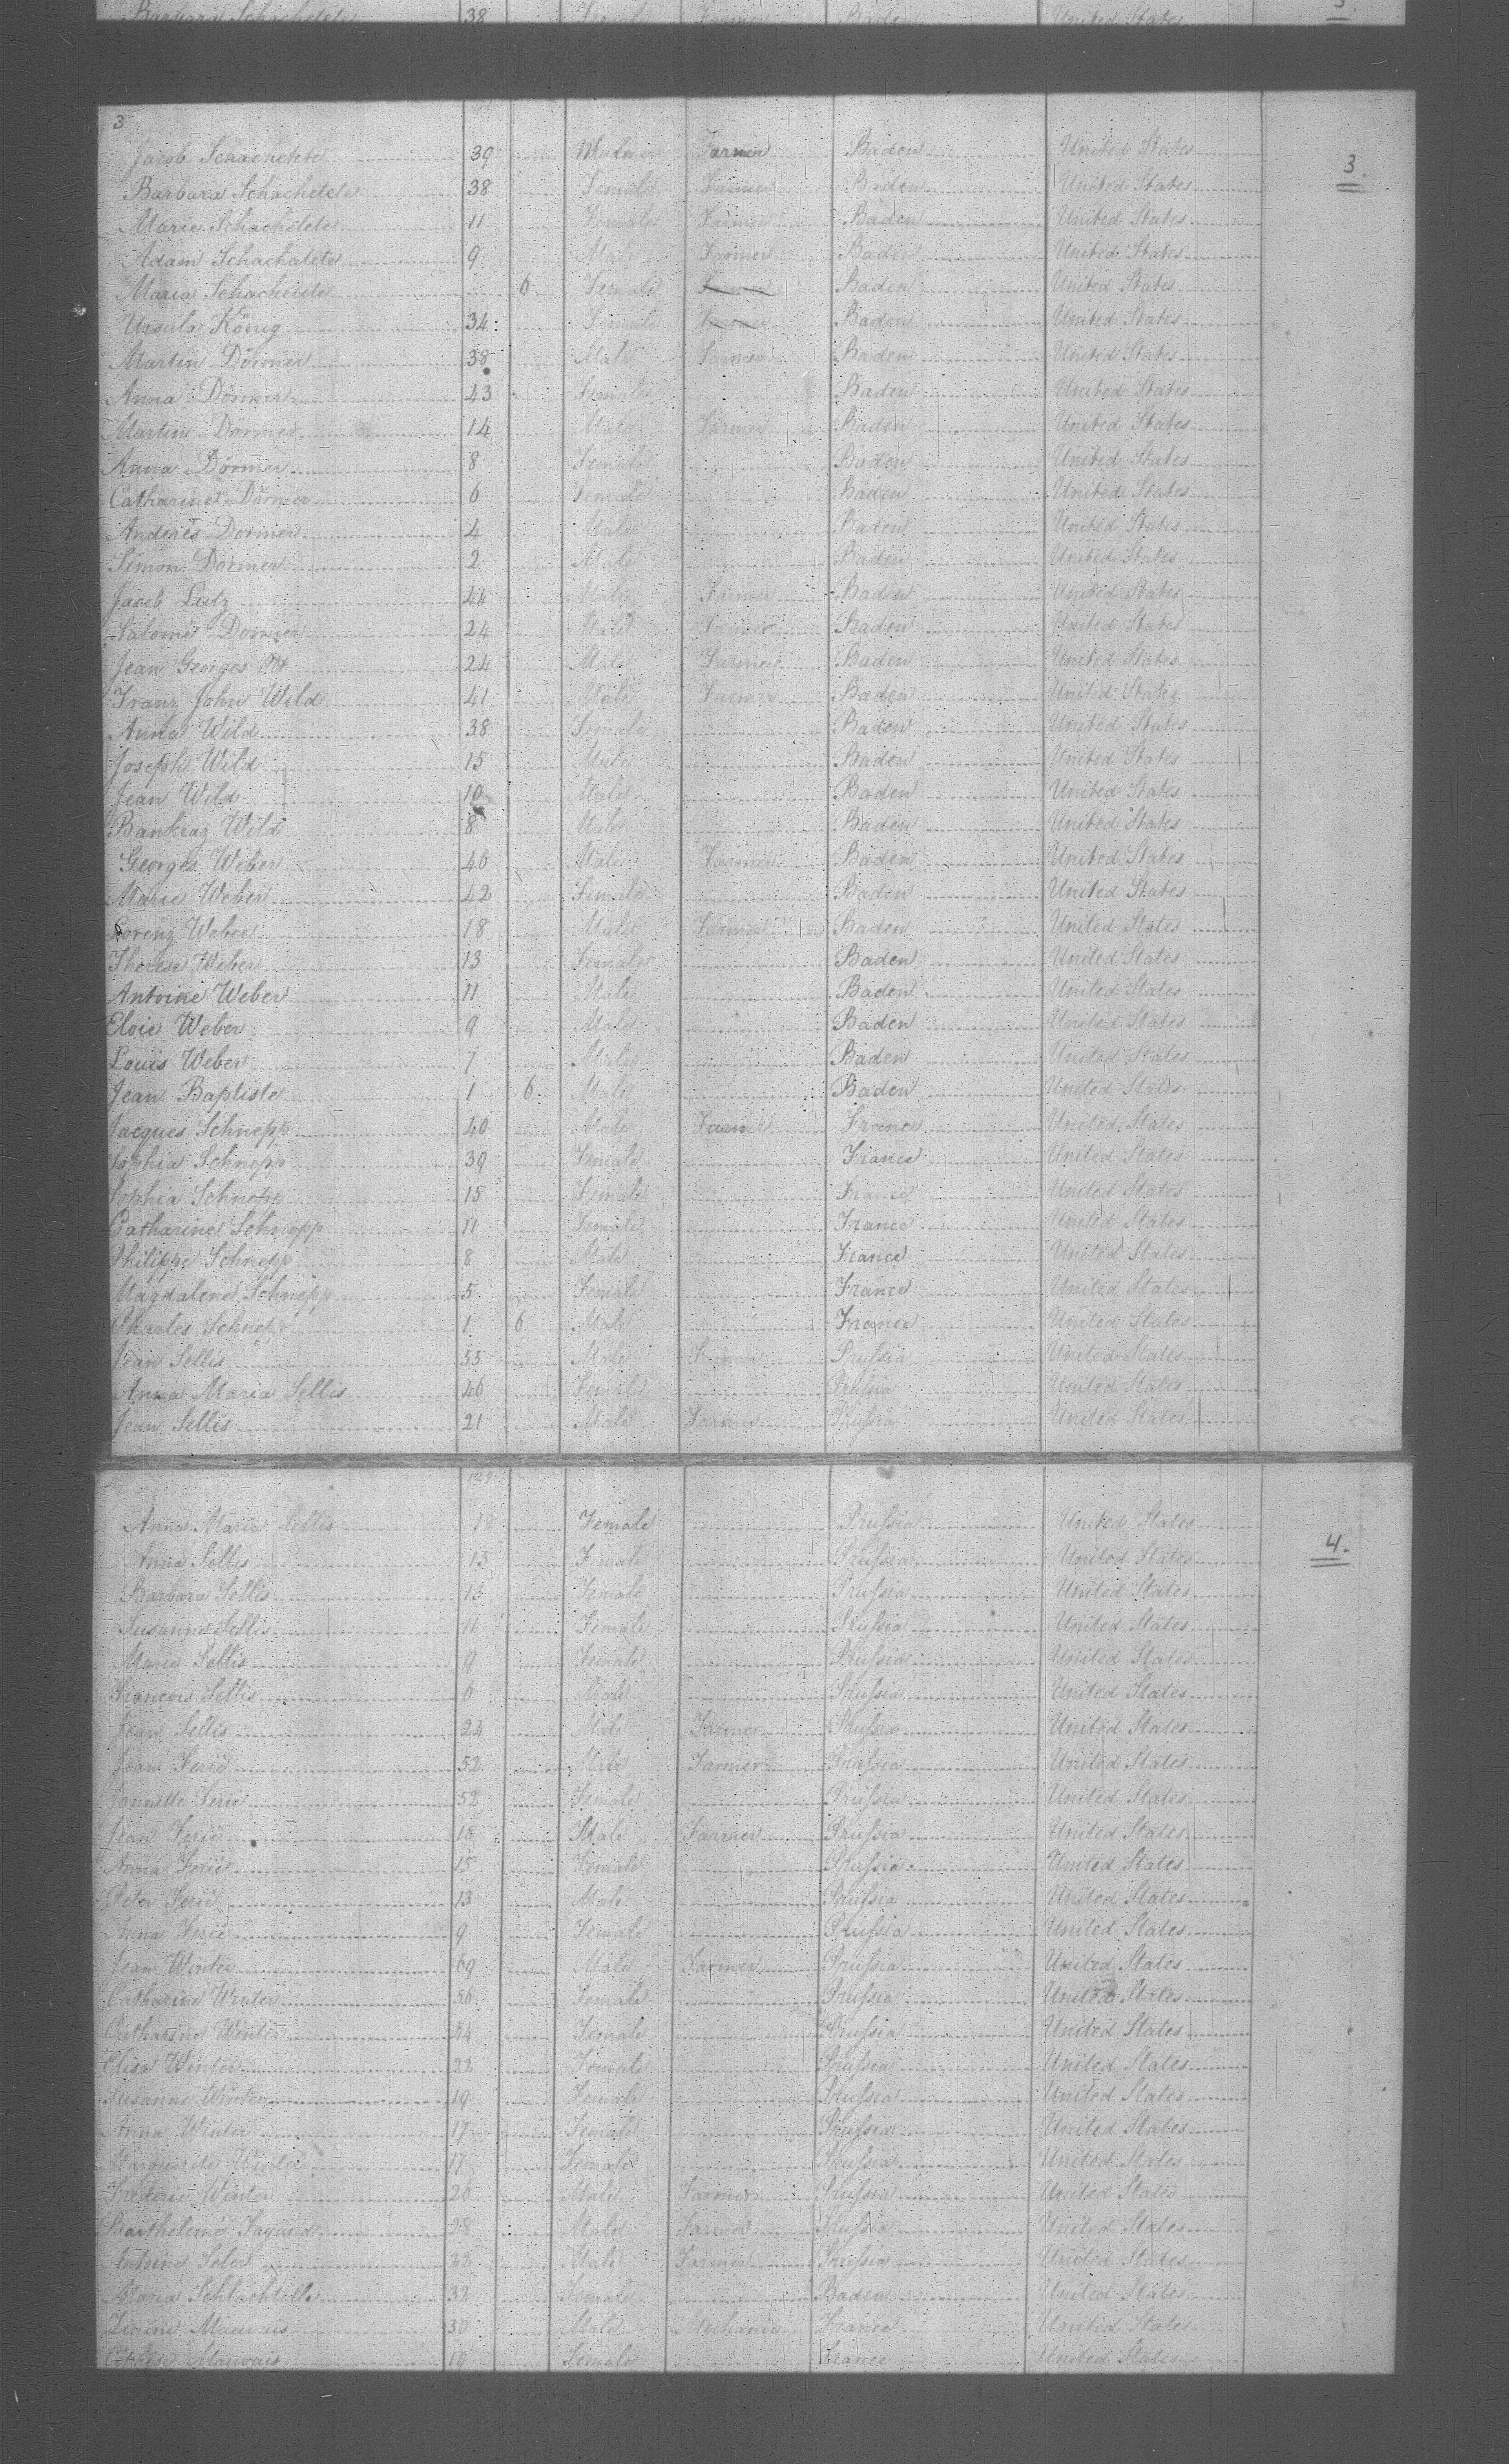 Barbara Schachelele 38 Female Farmer Baden United States 3.
3
Jacob Schachelele 39 Male Farmer Baden United States
3.
Barbara Schachelele 38 Female Farmer Baden United States
Marie Schachelele 11 Female Farmer Baden United States
Adam Schachalele 9 Male Farmer Baden United States
Maria Schachelele 6 Female Farmer Baden United States
Ursula König 34 Female Farmer Baden United States
Martin Dörmer 38 Male Farmer Baden United States
Anna Dörmer 43 Female Baden United States
Martin Dörmer 14 Male Farmer Baden United States
Anna Dörmer 8 Female Baden United States
Catharine Dörmer 6 Female Baden United States
Anderes Dormer 4 Male Baden United States
Simon Dörmer 2 Male Baden United States
Jacob Lutz 44 Male Farmer Baden United States
Salome Dormer 24 Male Farmer Baden United States
Jean Georges Ott 24 Male Farmer Baden United States
Franz John Wild 41 Male Farmer Baden United States
Anna Wild 38 Female Baden United States
Joseph Wild 15 Male Baden United States
Jean Wild 10 Male Baden United States
Bankraz Wild 8 Male Baden United States
Georges Weber 46 Male Farmer Baden United States
Marie Weber 42 Female Baden United States
Lorenz Weber 18 Male Farmer Baden United States
Therese Weber 13 Female Baden United States
Antoine Weber 11 Male Baden United States
Eloie Weber 9 Male Baden United States
Louis Weber 7 Male Baden United States
Jean Baptiste 1 6 Male Baden United States
Jacques Schnepp 40 Male Farmer France United States
Sophia Schnepp 39 Female France United States
Sophia Schnepp 15 Female France United States
Catharine Schnepp 11 Female France United States
Philippe Schnepp 8 Male France United States
Magdalene Schnepp 5 Female France United States
Charles Schnepp 1 6 Male France United States
Jean Sellis 55 Male Farmer Prussia United States
Anna Maria Sellis 46 Female Prussia United States
Jean Sellis 21 Male Farmer Prussia United States
Anna Maria Sellis 18 Female Prussia United States
4.
Anna Sellis 13 Female Prussia United States
Barbara Sellis 13 Female Prussia United States
Susanne Sellis 11 Female Prussia United States
Marie Sellis 9 Female Prussia United States
Francois Sellis 6 Male Prussia United States
Jean Sellis 24 Male Farmer Prussia United States
Jean 52 Male Farmer Prussia United States
52 Female Prussia United States
Jean 18 Male Farmer Prussia United States
Anna 15 Female Prussia United States
Peter 13 Male Prussia United States
Anna 9 Female Prussia United States
Jean Winter 69 Male Farmer Prussia United States
Catharine Winter 56 Female Prussia United States
Catharine Winter 44 Female Prussia United States
Elisa Winter 22 Female Prussia United States
Susanne Winter 19 Female Prussia United States
Anna Winter 17 Female Prussia United States
Marguerite Winter 17 Female Prussia United States
Frederic Winter 26 Male Farmer Prussia United States
Bartholemé 28 Male Farmer Prussia United States
Antoine Soler 33 Male Farmer Prussia United States
Maria 32 Female Baden United States
Mauvais 30 Male Mechanic France United States
Mauvais 19 Female France United States